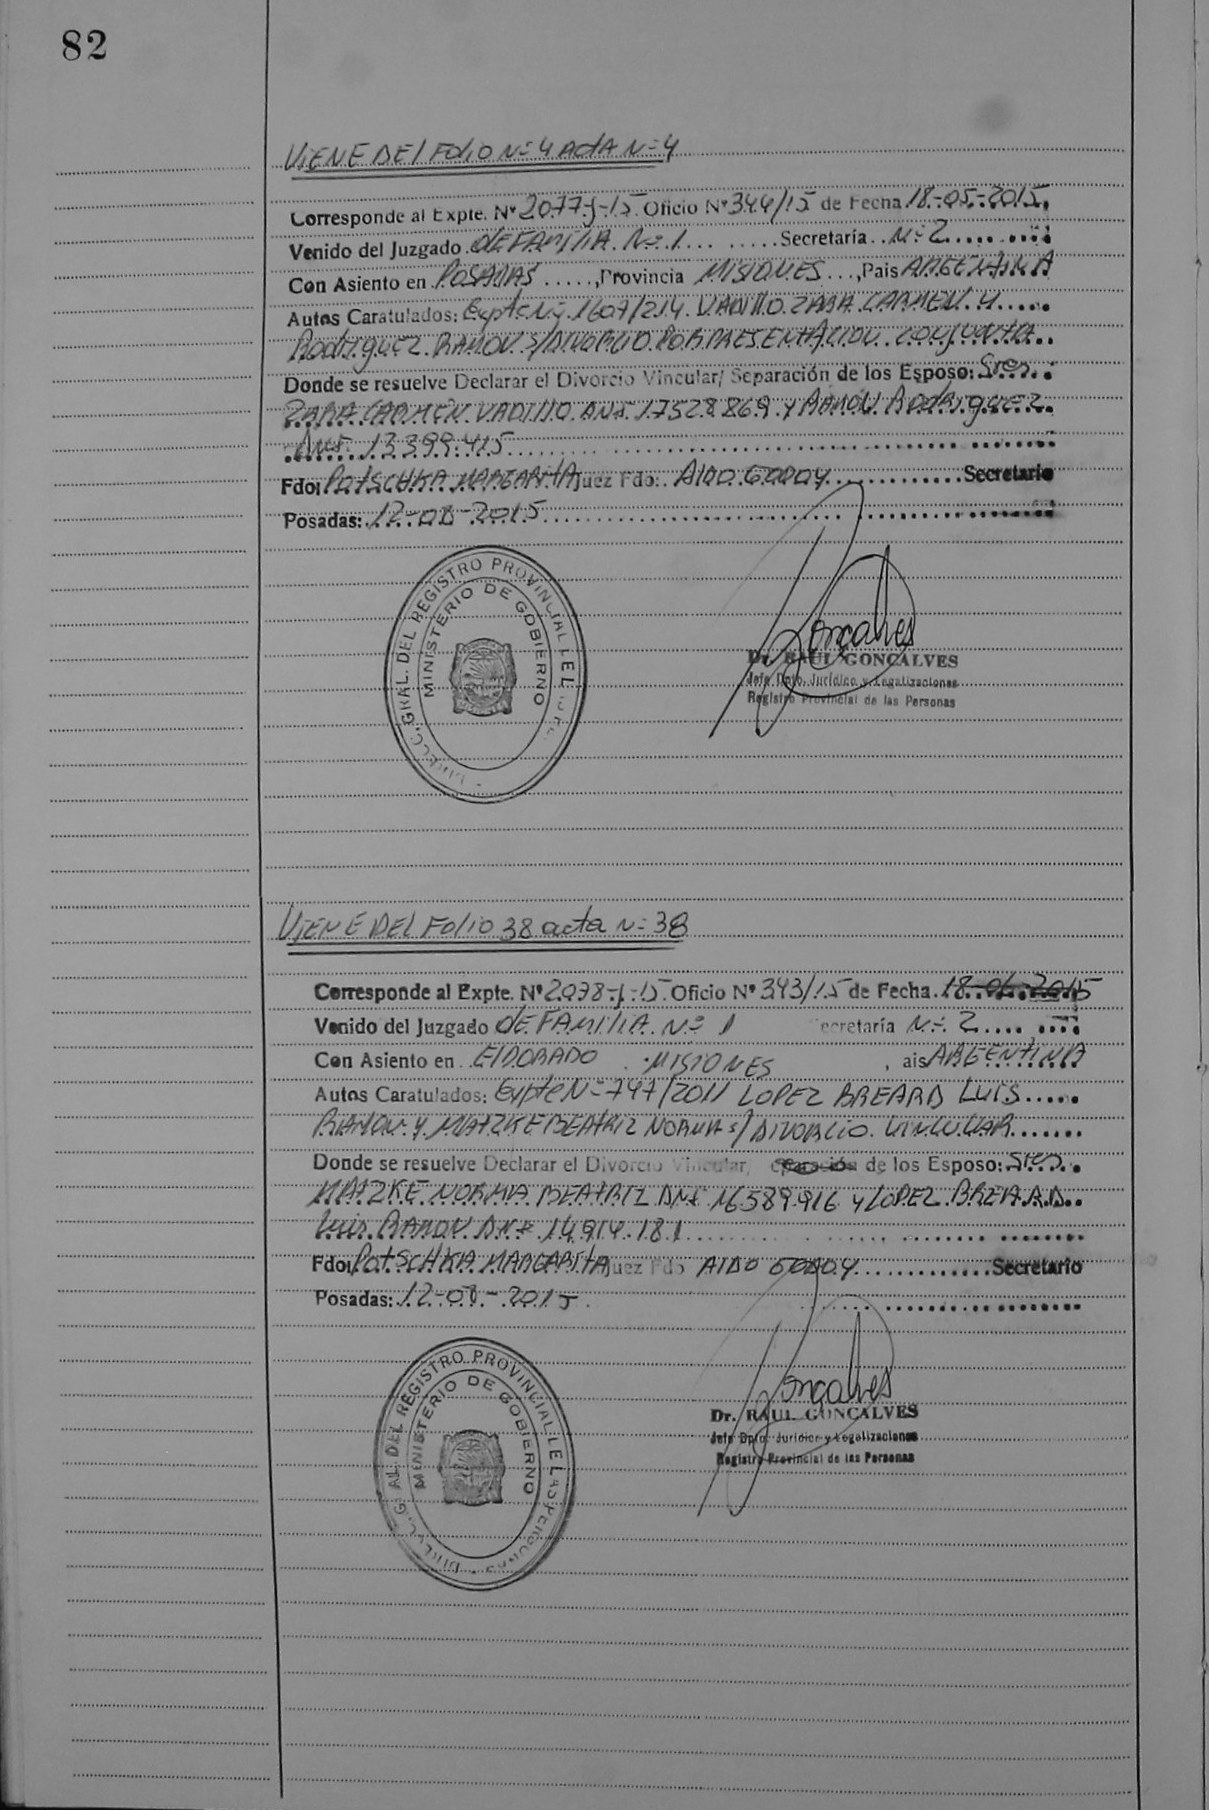 82
VIENE DEL FOLIO Nº 4 ACTA Nº 4
Corresponde al Expte. Nº 2077-J-15 Oficio Nº 344/15 de Fecha 18-05-2015.
Venido del Juzgado DE FAMILIA Nº 1 Secretaría Nº 2
Con Asiento en POSADAS, Provincia MISIONES, Pais ARGENTINA
Autos Caratulados: Expte Nº 1607/214 VADILLO ZARA CARMEN Y
Rodriguez RAMON S/DIVORCIO POR PRESENTACION CONJUNTA
Donde se resuelve Declarar el Divorcio Vincular/ Separación de los Esposo: Sres.
ZARA CARMEN VADILLO DNI 17528869 Y RAMÓN Rodriguez
DNI 13399415
Fdo: POTSCHKA MARGARITA Juez Fdo: ALDO GODOY Secretario
Posadas: 12-08-2015
DIRECC. GRAL. DEL REGISTRO PROVINCIAL
MINISTERIO DE GOBIERNO
Gonçalves
Dr. RAUL GONÇALVES
Jefe Dpto. Jurídico y Legalizaciones
Registro Provincial de las Personas
VIENE DEL FOLIO 38 acta Nº 38
Corresponde al Expte. Nº 2078-J-15 Oficio Nº 343/15 de Fecha 18-06-2015
Venido del Juzgado DE FAMILIA Nº 1 ecretaría Nº 2
Con Asiento en ELDORADO MISIONES , ais ARGENTINA
Autos Caratulados: Expte Nº 747/2011 LOPEZ BREARD LUIS
RAMON Y MATZKE BEATRIZ NORMA S/ DIVORCIO VINCULAR
Donde se resuelve Declarar el Divorcio Vincular, eparación de los Esposo: Sres.
MATZKE NORMA BEATRIZ DNI 16589916 Y LOPEZ BREARD
Luis RAMON DNI 14914181
Fdo: POTSCHKA MARGARITA Juez Fdo ALDO GODOY Secretario
Posadas: 12-08-2015
AL. DEL REGISTRO PROVINCIAL
MINISTERIO DE GOBIERNO
Gonçalves
Dr. RAUL GONÇALVES
Jefe Dpto. Jurídico y Legalizaciones
Registro Provincial de las Personas